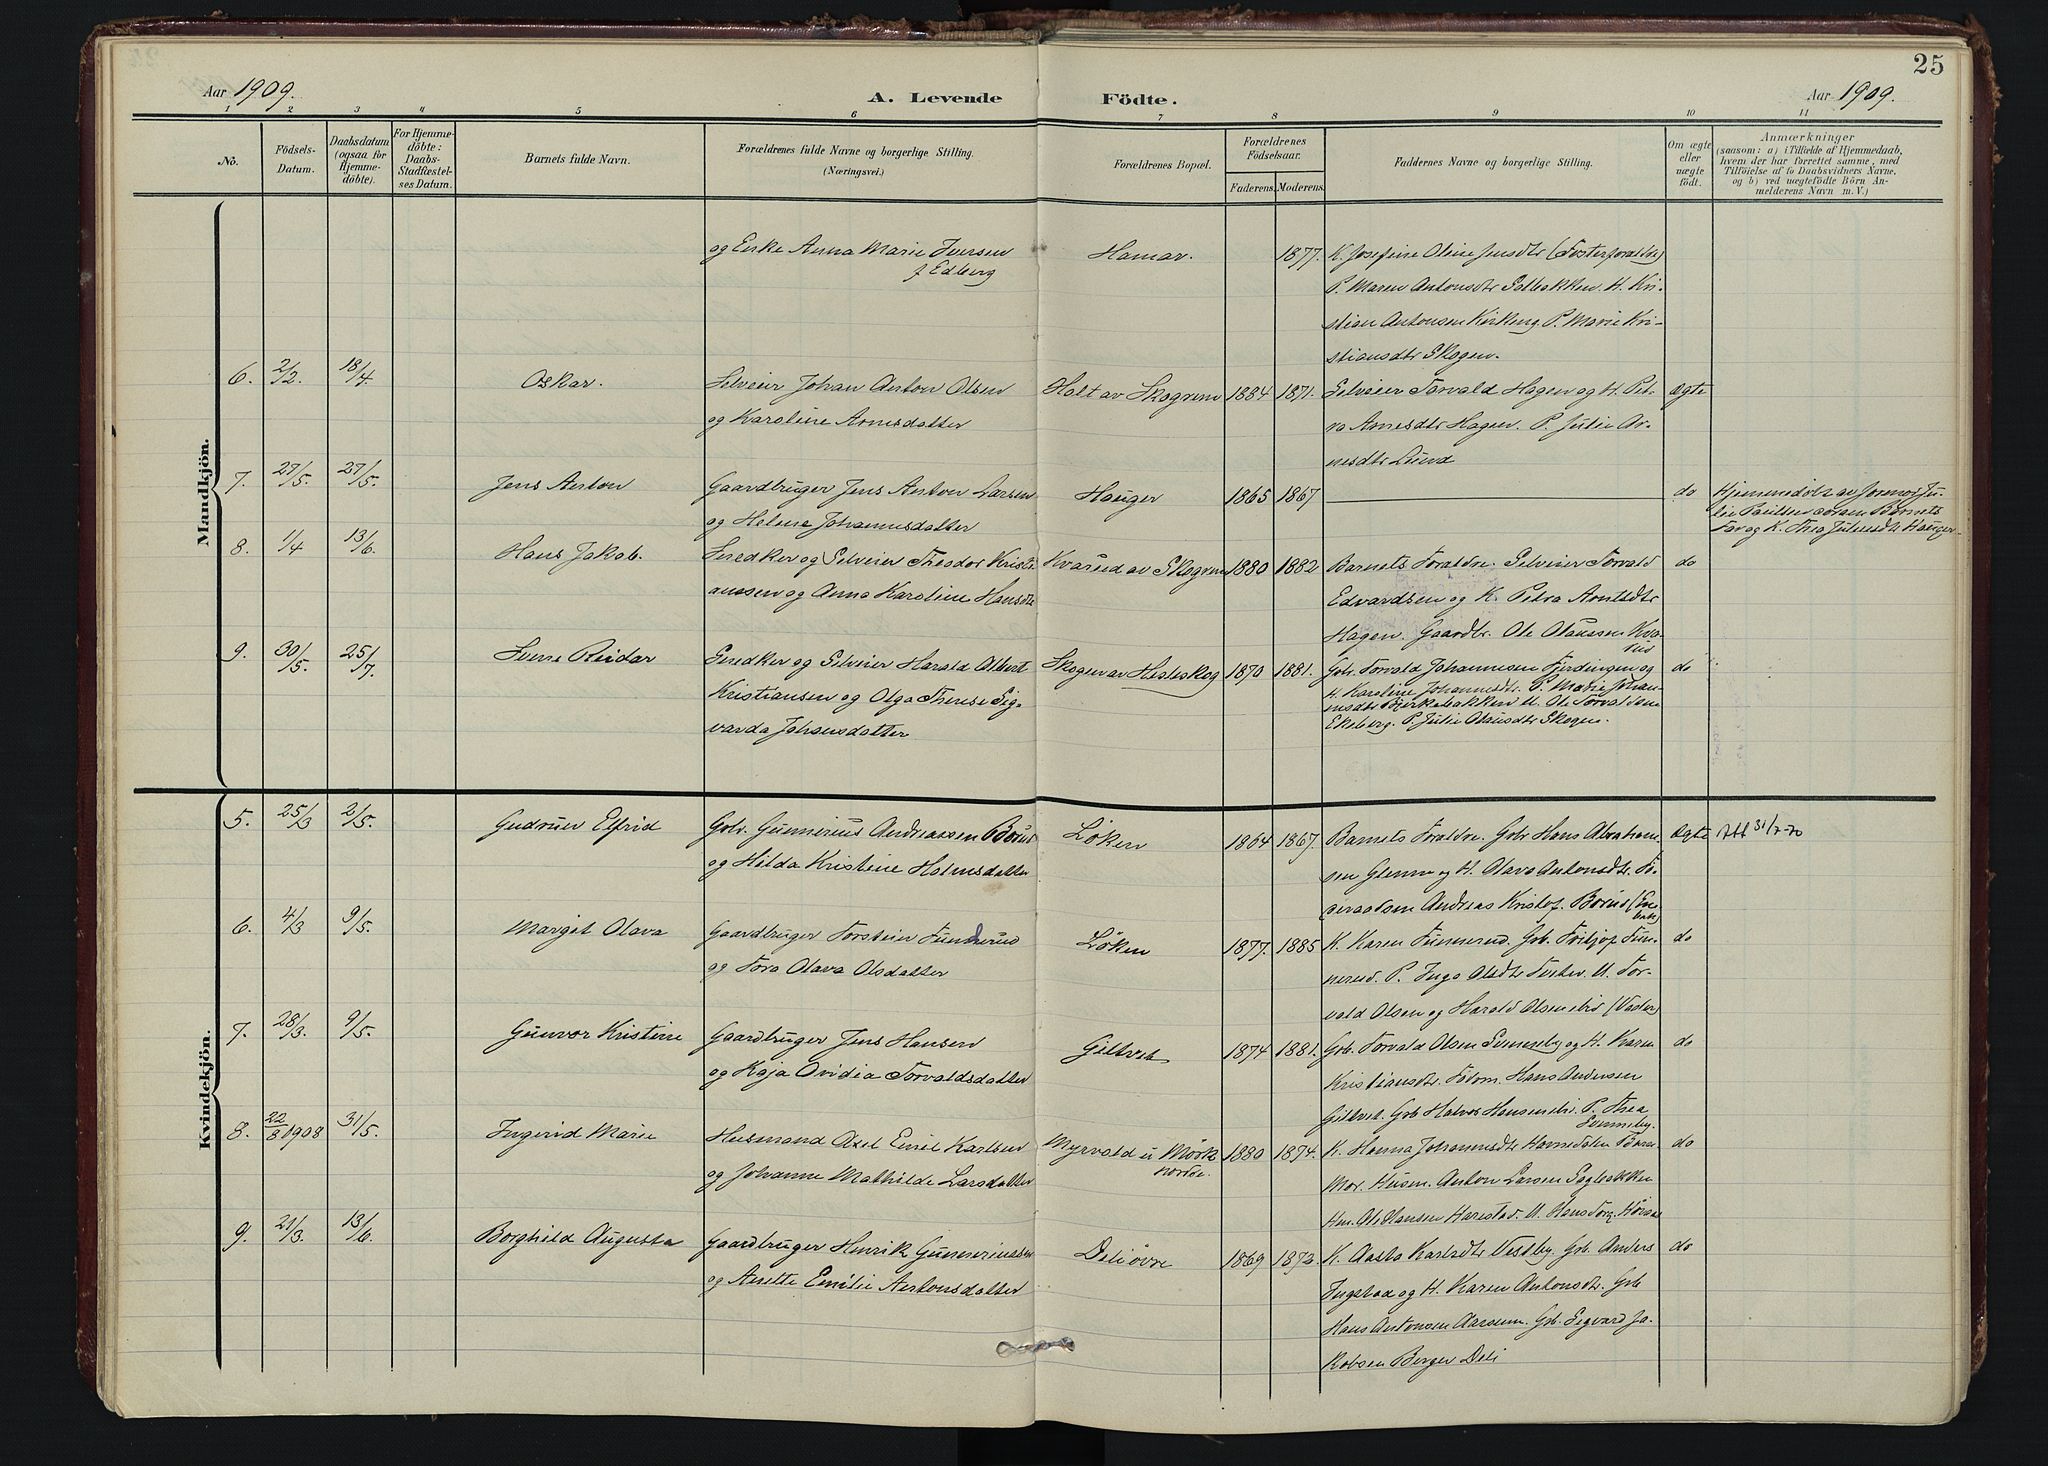 25
Aar 1909.
A. Levende Födte.
Aar 1909.
1 2 3 4 5 6 7 8 9 10 11
No.
Födsels-
Datum.
Daabsdatum
(ogsaa for
Hjemme-
döbte).
For Hjemme-
döbte:
Daabs-
Stadfæstel-
ses Datum.
Barnets fulde Navn.
Forældrenes fulde Navne og borgerlige Stilling.
(Næringsvei.)
Forældrenes Bopæl.
Forældrenes
Födselsaar.
Faderens. Moderens.
Faddernes Navne og borgerlige Stilling.
Om ægte
eller
uægte
födt.
Anmærkninger
(saasom: a) i Tilfælde af Hjemmedaab,
hvem der har forrettet samme, med
Tilföielse af to Daabsvidners Navne,
og b) ved uægtefödte Börn An-
melderens Navn m. V.)
Mandkjön.
og Enke Anna Marie Iversen
f. Edberg
Hamar.
1877.
K. Josefine Oline Jensdtr (Fosterforældre)
P. Maren Antonsdtr H. Kri-
stian Antonsen Kirkeng. P. Marie Kri-
stiansdtr Skogen.
6. 2/2. 18/4. Oskar.
Selveier Johan Anton Olsen
og Karoline Arnesdatter
Holt av Skogrem 1884 1871.
Selveier Torvald Hagen og H. Pet-
ra Arnesdtr Hagen. P. Julie Ar-
nesdtr Lund
Ægte
7. 27/5. 27/5. Jens Anton
Gaardbruger Jens Anton Larsen
og Helene Johannesdatter
Hauger 1865 1867
do
Hjemmedöbt av Jormor Ju-
lie Paulsen Barnets
Far og K. Thea Julensdtr Hauger
8. 1/4 13/6. Hans Jakob.
Snedker og Selveier Theodor Kristi-
anssen og Anna Karoline Hansdtr
Kvarud av Skogrem 1880 1882
Barnets Forældre. Selveier Torvald
Edvardsen og K. Petra Arntsdtr
Hagen. Gaardbr. Ole Olaussen Kva-
rud
do
9. 30/5. 25/7. Sverre Reidar
Snedker og Selveier Harald Albert
Kristiansen og Olga Therese Sig-
varda Johansdatter
Skogen av Hesteskog 1870 1881.
Gbr. Torvald Johannesen Fjerdingen og
H. Karoline Johannesdtr. P. Marie Johan-
nesdtr Bjerkebakken U. Ole Torvaldsen
Ekeberg. P. Julie Olausdtr Skogen.
do
Kvindekjön.
5. 25/3 2/5. Gudrun Elfrid
Gbr. Gunnerius Andreassen Börud
og Hilda Kristine Holmsdatter
Löken 1864 1867.
Barnets Forældre. Gbr Hans Abraham-
sen Glenne og H. Olava Antonsdtr.
Andreas Kristof. Börud
Ægte Att 31/7-70
6. 4/3 9/5. Margit Olava
Gaardbruger Torstein Tunnerud
og Tora Olava Olsdatter
Löken 1877. 1885
K. Karen Tunnerud. Gbr. Tun-
nerud. P. Inga Olsdtr U. Tor-
vald Olsen og Harald Olsen ibid
do
7. 28/3. 9/5. Gunvor Kristine
Gaardbruger Jens Hansen
og Kaja Ovidia Torvaldsdatter
Giltvet 1874 1881.
Gbr. Torvald Olsen Svenneby og H. Karen
Kristiansdtr. Födom. Hans Andersen
Giltvet. Gbr Halvor Hansen ibi. P. Thea
Svenneby.
do
8. 22/8 1908 31/5. Ingerid Marie
Husmand Axel Emil Karlsen
og Johanne Mathilde Larsdatter
Myrvold u Mörk
nordre. 1880 1874.
K. Hanna Johannesdtr
Mor. Husm. Anton Larsen Sagbakken
Hm. Ole Hansen Harestad. U. Hans
do
9. 21/3. 13/6. Borghild Augusta
Gaardbruger Henrik Gunneriussen
og Anette Emilie Antonsdatter
Deli övre 1869 1873.
K. Aasta Karlsdtr Vestby. Gbr. Anders
Ingstad og H. Karen Antonsdtr. Gbr
Hans Antonsen Aarsrum. Gbr. Sigvard Ja-
kobsen Berger Deli
do